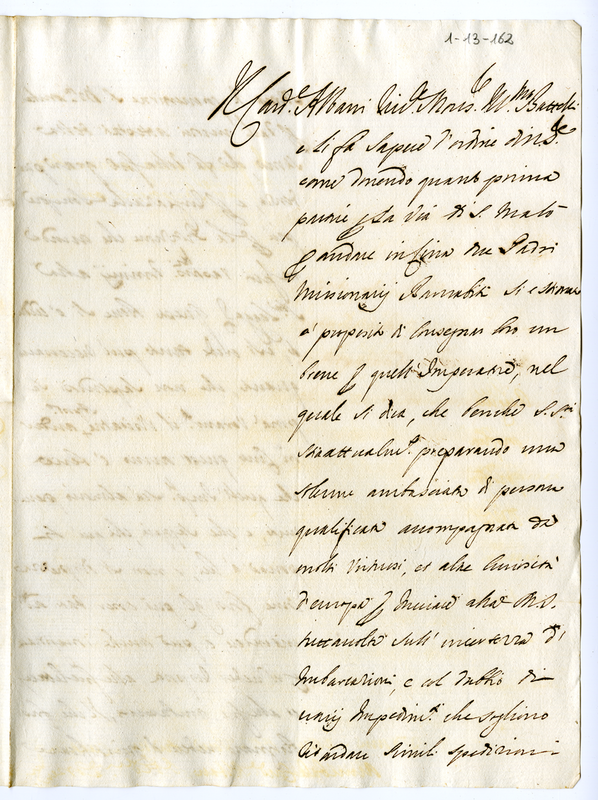 1-13-162
Il Card.e Albani riv.e Mons.r Ill.mo Battelli
e li fa sapere l'ordine di N.S.re
come dovendo quanto prima
partire p la via di S. Malò
p andare in Cina due Padri
Missionarij Barnabiti si è stimato
à proposito di consegnar loro un
breve p quell'Imperatore, nel
quale si dica, che benche S. S.tà
stia attualm.te preparando una
solenne ambasciata di persone
qualificate accompagnata da
molti virtuosi, et altre curiosità
d'europa p inviare alla M.S.
tuttavolta sull'incertezza d'
Imbarcazioni, e col dubbio di
varij Impedim.ti che sogliono
ritardare simili spedizioni